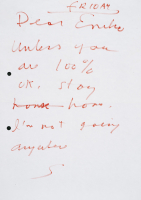 FRIDAY
Dear
Unless you
are 100%
OK, stay
home.
I'm not going
anywhere
S.